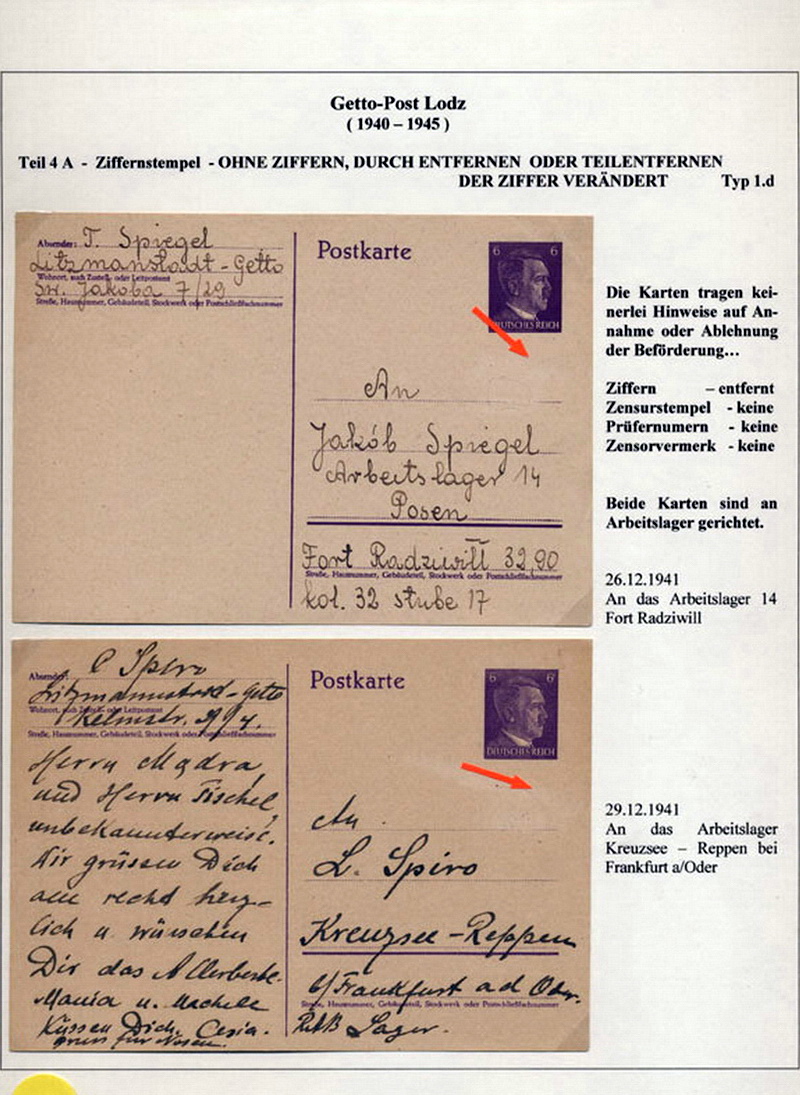 Getto-Post Lodz
( 1940 – 1945 )
Teil 4 A - Ziffernstempel - OHNE ZIFFERN, DURCH ENTFERNEN ODER TEILENTFERNEN
DER ZIFFER VERÄNDERT Typ 1.d
Absender: T. Spiegel
Litzmanstadt-Getto
Wohnort, auch Zustell- oder Leitpostamt
Sw. Jakoba 7/29
Straße, Hausnummer, Gebäudeteil, Stockwerk oder Postschließfachnummer
Postkarte
6 6
DEUTSCHES REICH
An
Jakób Spiegel
Arbeitslager 14
Posen
Fort Radziwill 32,90
Straße, Hausnummer, Gebäudeteil, Stockwerk oder Postschließfachnummer
kol. 32 stube 17
Die Karten tragen kei-
nerlei Hinweise auf An-
nahme oder Ablehnung
der Beförderung...
Ziffern – entfernt
Zensurstempel - keine
Prüfernumern - keine
Zensorvermerk - keine
Beide Karten sind an
Arbeitslager gerichtet.
26.12.1941
An das Arbeitslager 14
Fort Radziwill
Absender: C Spiro
Litzmannstadt-Getto
Wohnort, auch Zustell- oder Leitpostamt
Straße, Hausnummer, Gebäudeteil, Stockwerk oder Postschließfachnummer
Herrn Madra,
und Herrn Fischel
unbekannterweise.
Wir grüssen Dich
alle recht herz-
lich u. wünschen
Dir das Allerbeste.
Mania u. Machele
Küssen Dich. Cesia.
Postkarte
6 6
DEUTSCHES REICH
An
L. Spiro
Kreuzsee-Reppen
b/Frankfurt a d Oder.
Straße, Hausnummer, Gebäudeteil, Stockwerk oder Postschließfachnummer
Lager.
29.12.1941
An das Arbeitslager
Kreuzsee – Reppen bei
Frankfurt a/Oder